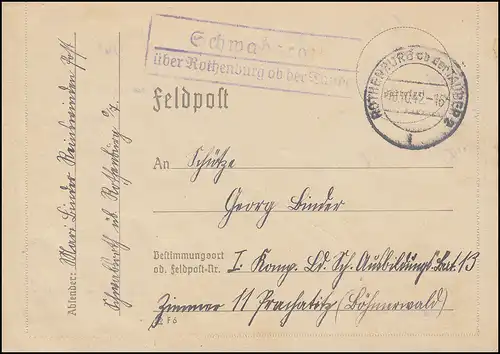 über Rothenburg ob der
ROTHENBURG ob der TAUBER 2
42.-16
Feldpost
An Schütze
Georg Binder
Bestimmungsort
od. Feldpost-Nr. I. Komp. Ld. Sch. Ausbildungs Batl. 13
Zimmer 11 Prachatitz (Böhmerwald)
Absender: Mari Binder Post
üb. Rothenburg o/T.